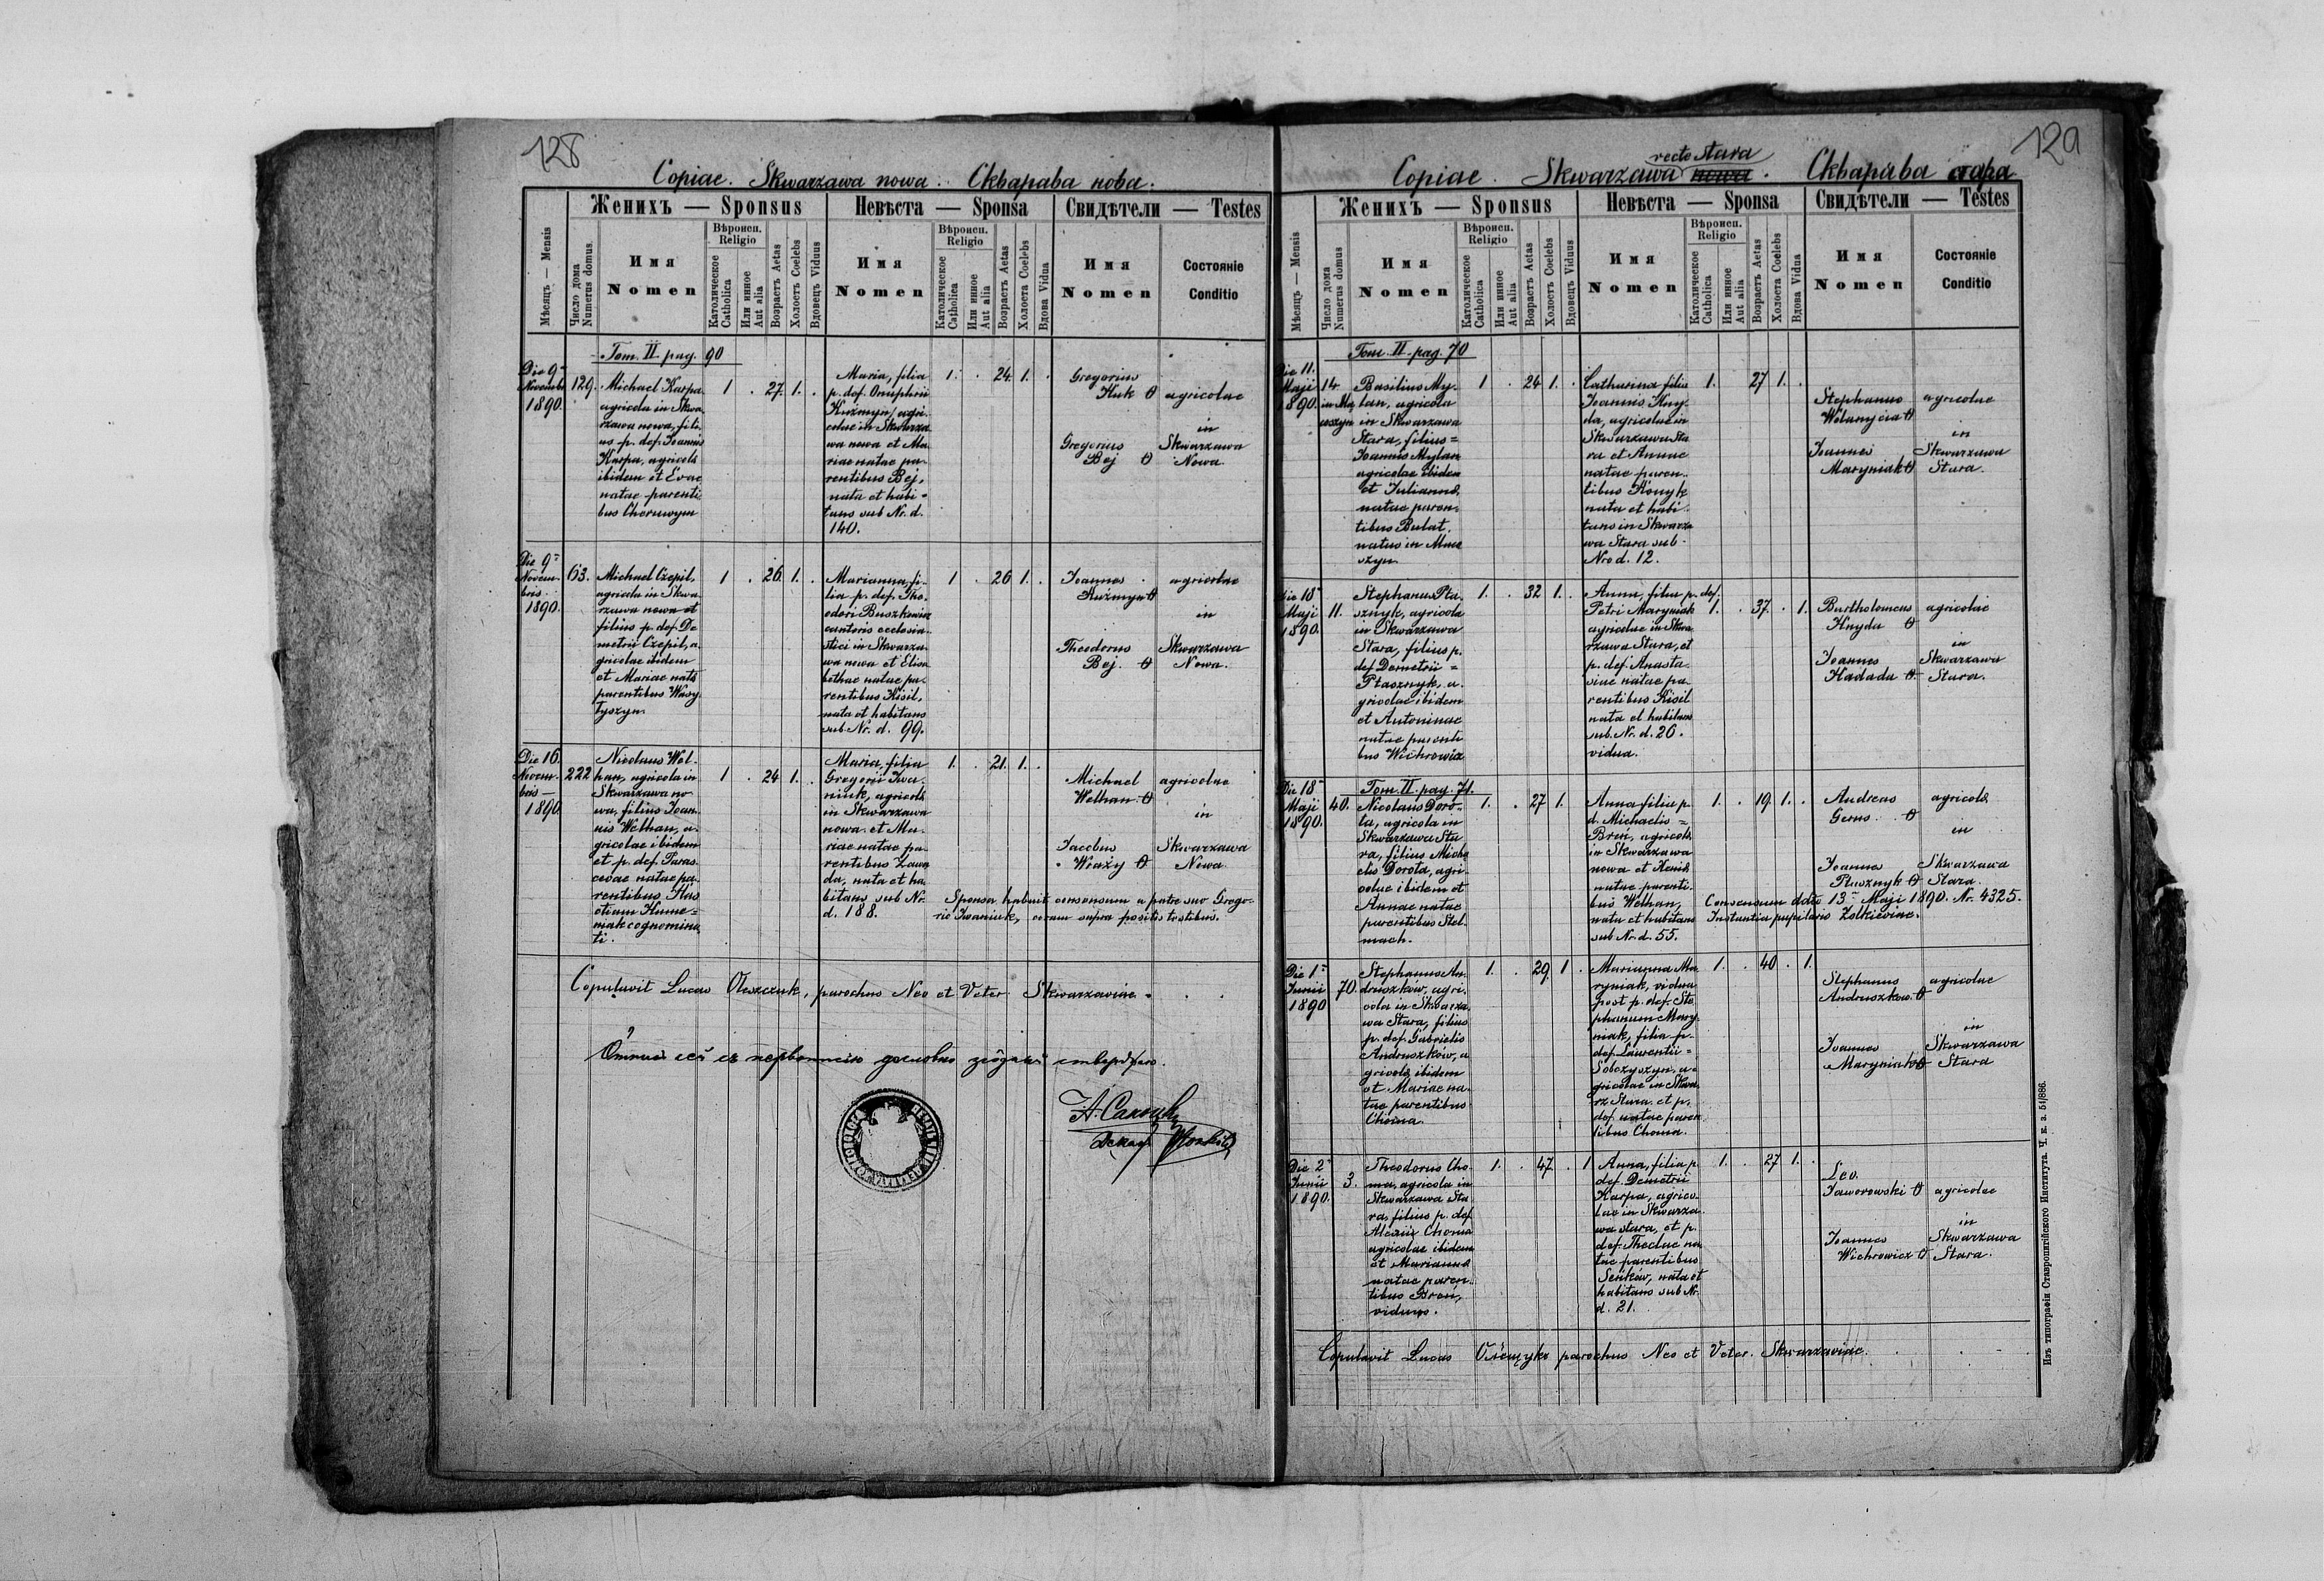 128
Copiae. Skwarzawa nowa. Скварава нова.
Женихъ — Sponsus
Невѣста — Sponsa
Свидѣтели — Testes
Мѣсяцъ — Mensis
Число дома
Numerus domus.
Имя
Nomen
Вѣроисп.
Religio
Католическое
Catholica
Или инное
Aut alia
Возрастъ Aetas
Холостъ Coelebs
Вдовецъ Viduus
Имя
Nomen
Вѣроисп.
Religio
Католическое
Catholica
Или инное
Aut alia
Возрастъ Aetas
Холоста Coelebs
Вдова Vidua
Имя
Nomen
Состояніе
Conditio
Tom. II pag. 90
Die 9
Novemb.
1890.
129.
Michael Karpa
agricola in Skwa
rzawa nowa, fili
us p. def. Joannis
Karpa, agricola
ibidem et Evae
natae parenti
bus Cheruwym
1 . 27. 1. .
Maria, filia
p. def. Onuphrii
Kuźmyn, agri-
colae in Skwarza
wa nowa et Ma
riae natae pa-
rentibus Bej,
nata et habi-
tans sub Nr. d.
140.
1. . 24. 1. .
Gregorius
Kuk
agricolae
in
Gregorius
Bej
Skwarzawa
Nowa
Die 9
Novem-
bris
1890.
63.
Michael Czepil,
agricola in Skwa-
rzawa nowa et
filius p. def. De
metrii Czepil, a-
gricolae ibidem
et Mariae nata
parentibus Wasy
tyszyn
1 . 26. 1. .
Marianna, fi-
lia p. def. Theo-
odori Buszkowicz
cantoris ecclesia-
stici in Skwarza-
wa nowa et Elisa
bethae natae pa-
rentibus Kisil,
nata et habitans
sub Nr. d. 99.
1 . 26 1. .
Joannes
Kuźmyn
agricolae
in
Theodorus
Bej.
Skwarzawa
Nowa.
Die 16
Novem-
bris
1890.
222
Nicolaus Wel-
han, agricola in
Skwarzawa no
wa, filius Joan-
nis Welhan, a-
gricolae ibidem
et p. def. Paras-
cevae natae pa-
rentibus Has
etiam Hume-
niak cognomina
ti.
1 . 24 1. .
Maria, filia
Gregorii Iwa-
niuk, agricola
in Skwarzawa
nowa et Ma-
riae natae pa-
rentibus Zawa
da, nata et ha
bitans sub Nr.
d. 188.
1. . 21. 1. .
Michael
Welhan
agricolae
in
Jacobus
Wraży
Skwarzawa
Nowa
Sponsa habuit consensum a patre suo Grego-
rio Iwaniuk, coram supra positis testibus.
Copulavit Lucas Oleszczuk, parochus Neo et Veter Skwarzaviae.
129
Copiae. Skwarzawa nowa. recte stara Скварава стара
Женихъ — Sponsus
Невѣста — Sponsa
Свидѣтели — Testes
Мѣсяцъ — Mensis
Число дома
Numerus domus
Имя
Nomen
Вѣроисп.
Religio
Католическое
Catholica
Или инное
Aut alia
Возрастъ Aetas
Холостъ Coelebs
Вдовецъ Viduus
Имя
Nomen
Вѣроисп.
Religio
Католическое
Catholica
Или инное
Aut alia
Возрастъ Aetas
Холоста Coelebs
Вдова Vidua
Имя
Nomen
Состояніе
Conditio
Tom. II. pag. 70
Die 11.
Maji
1890.
14
in Ma
coszyn
Basilius My-
lan, agricola
in Skwarzawa
Stara, filius
Joannis Mylan
agricolae ibidem
et Julianna
natae paren-
tibus Bulat,
natus in Maco
szyn.
1 . 24 1. .
Catharina filia
Joannis Hny-
da, agricolae in
Skwarzawa Sta
ra et Annae
natae paren-
tibus Konyk
nata et habi-
tans in Skwarza
wa Stara sub
Nro d. 12.
1. . 27 1. .
Stephanus
Wolanycia
agricolae
in
Joannes
Maryniak
Skwarzawa
Stara.
Die 18
Maji
1890.
11.
Stephanus Pta-
sznyk, agricola
in Skwarzawa
Stara, filius p.
def Demetrii
Ptasznyk, a-
gricolae ibidem
et Antoninae
natae parenti
bus Wichrowicz
1. . 32 1. .
Anna, filia p. def.
Petri Maryniak
agricolae in Skwa
rzawa Stara, et
p. def. Anasta-
siae natae pa-
rentibus Kisil
nata et habitans
sub. Nr. d. 26.
vidua.
1. . 37. . 1.
Bartholomeus
Hnyda
agricolae
in
Joannes
Hadada
Skwarzawa
Stara.
Tom. II. pag. 71.
Die 18
Maji
1890.
40.
Nicolaus Doro-
ta, agricola in
Skwarzawa Sta
ra, filius Micha
elis Dorota, agri-
colae ibidem et
Annae natae
parentibus Stel
mach.
1. . 27 1.
Anna filia p.
d. Michaelis
Breń, agricola
in Skwarzawa
nowa et Xenia
natae parenti-
bus Welhan,
nata et habitans
sub Nr. d. 55.
1. . 19. 1. .
Andreas
Gerus
agricola
in
Joannes
Ptasznyk
Skwarzawa
Stara.
Consensum ddto 13 Maji 1890. Nr. 4325.
Instantia pupilaris Zolkieviae.
Die 1
Junii
1890
70.
Stephanus An-
druszkow, agri-
cola in Skwarza
wa Stara, filius
p. def. Gabrielis
Andruszkow, a
gricola ibidem
et Mariae na-
tae parentibus
Choma.
1. . 29. 1 .
Marianna Ma
ryniak, vidua
post p. def. Ste
phanum Mary-
niak, filia p.
def. Laurentii
Sobczyszyn, a-
gricolae in Skwa
rz Stara et p.
def. natae paren
tibus Choma.
1. . 40 . 1.
Stephanus
Andruszkow.
agricolae
in
Joannes
Maryniak
Skwarzawa
Stara
Die 2
Junii
1890.
3.
Theodorus Cho-
ma, agricola in
Skwarzawa Sta
ra, filius p. def
Alexii Choma
agricolae ibidem
et Marianna
natae paren-
tibus Breń,
viduus.
1. . 47. . 1
Anna, filia p.
def. Demetrii
Karpa, agrico-
lae in Skwarza-
wa stara, et p.
def. Theclae na
tae parentibus
Seńków, nata et
habitans sub Nr.
d. 21.
1. . 27 1. .
Leo
Jaworowski
agricolae
in
Joannes
Wichrowicz
Skwarzawa
Stara.
Copulavit Lucas parochus Neo et Veter. Skwarzaviae.
Изъ типографіи Ставропигійского Института. Ч. к. а. 51/886.